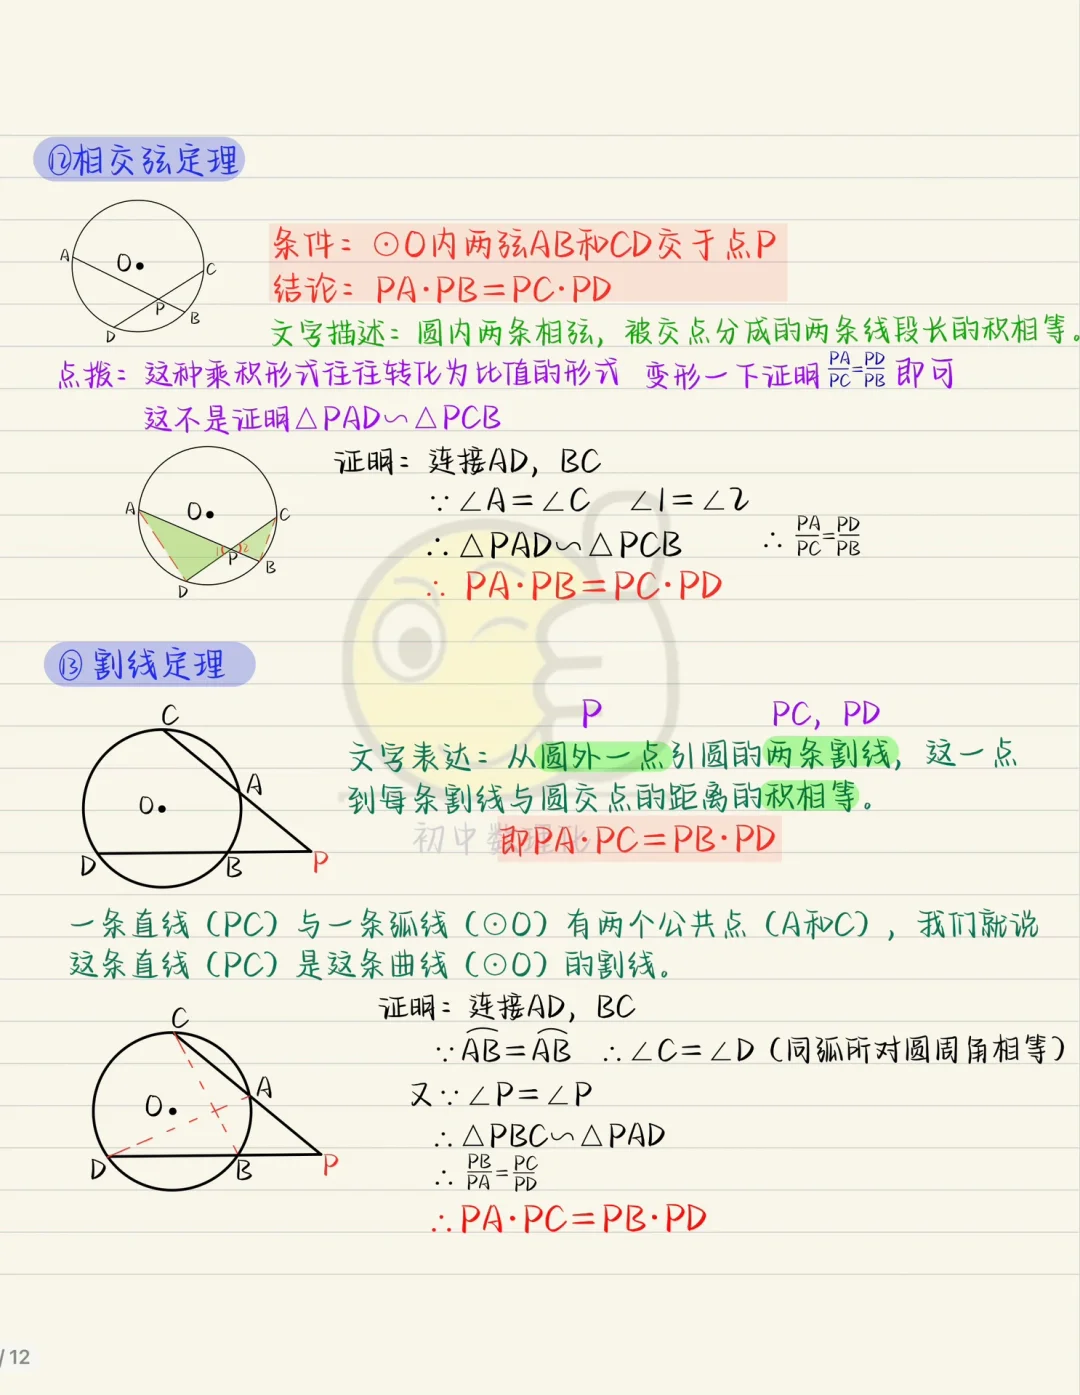 ⑫相交弦定理
A O C P B D
条件：⊙O内两弦AB和CD交于点P
结论：PA·PB=PC·PD
文字描述：圆内两条相弦，被交点分成的两条线段长的积相等。
点拨：这种乘积形式往往转化为比值的形式 变形一下证明PA/PC=PD/PB即可
这不是证明△PAD∽△PCB
证明：连接AD，BC
A O C 1 2 P B D
∵∠A=∠C ∠1=∠2
∴△PAD∽△PCB ∴PA/PC=PD/PB
∴ PA·PB=PC·PD
⑬割线定理
C A O D B P
P PC，PD
文字表达：从圆外一点引圆的两条割线，这一点
到每条割线与圆交点的距离的积相等。
初中数理化
即PA·PC=PB·PD
一条直线（PC）与一条弧线（⊙O）有两个公共点（A和C），我们就说
这条直线（PC）是这条曲线（⊙O）的割线。
证明：连接AD，BC
C A O D B P
∵AB=AB ∴∠C=∠D（同弧所对圆周角相等）
又∵∠P=∠P
∴△PBC∽△PAD
∴PB/PA=PC/PD
∴PA·PC=PB·PD
/12